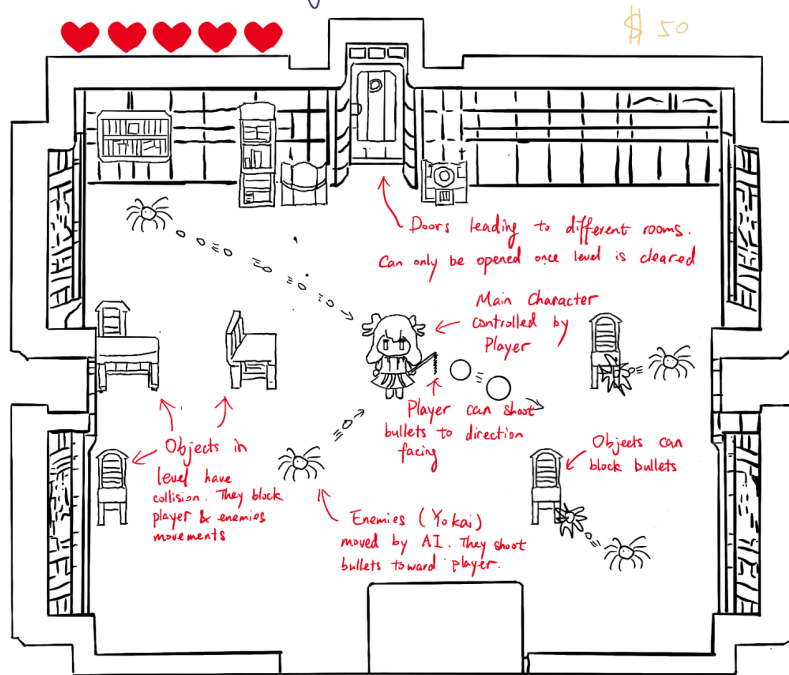 $ 50
Doors leading to different rooms.
Can only be opened once level is cleared
Main Character
controlled by
Player
Player can shoot
bullets to direction
facing
Objects in
level have
collision. They block
player & enemies
movements
Objects can
block bullets
Enemies (Yokai)
moved by AI. They shoot
bullets toward player.